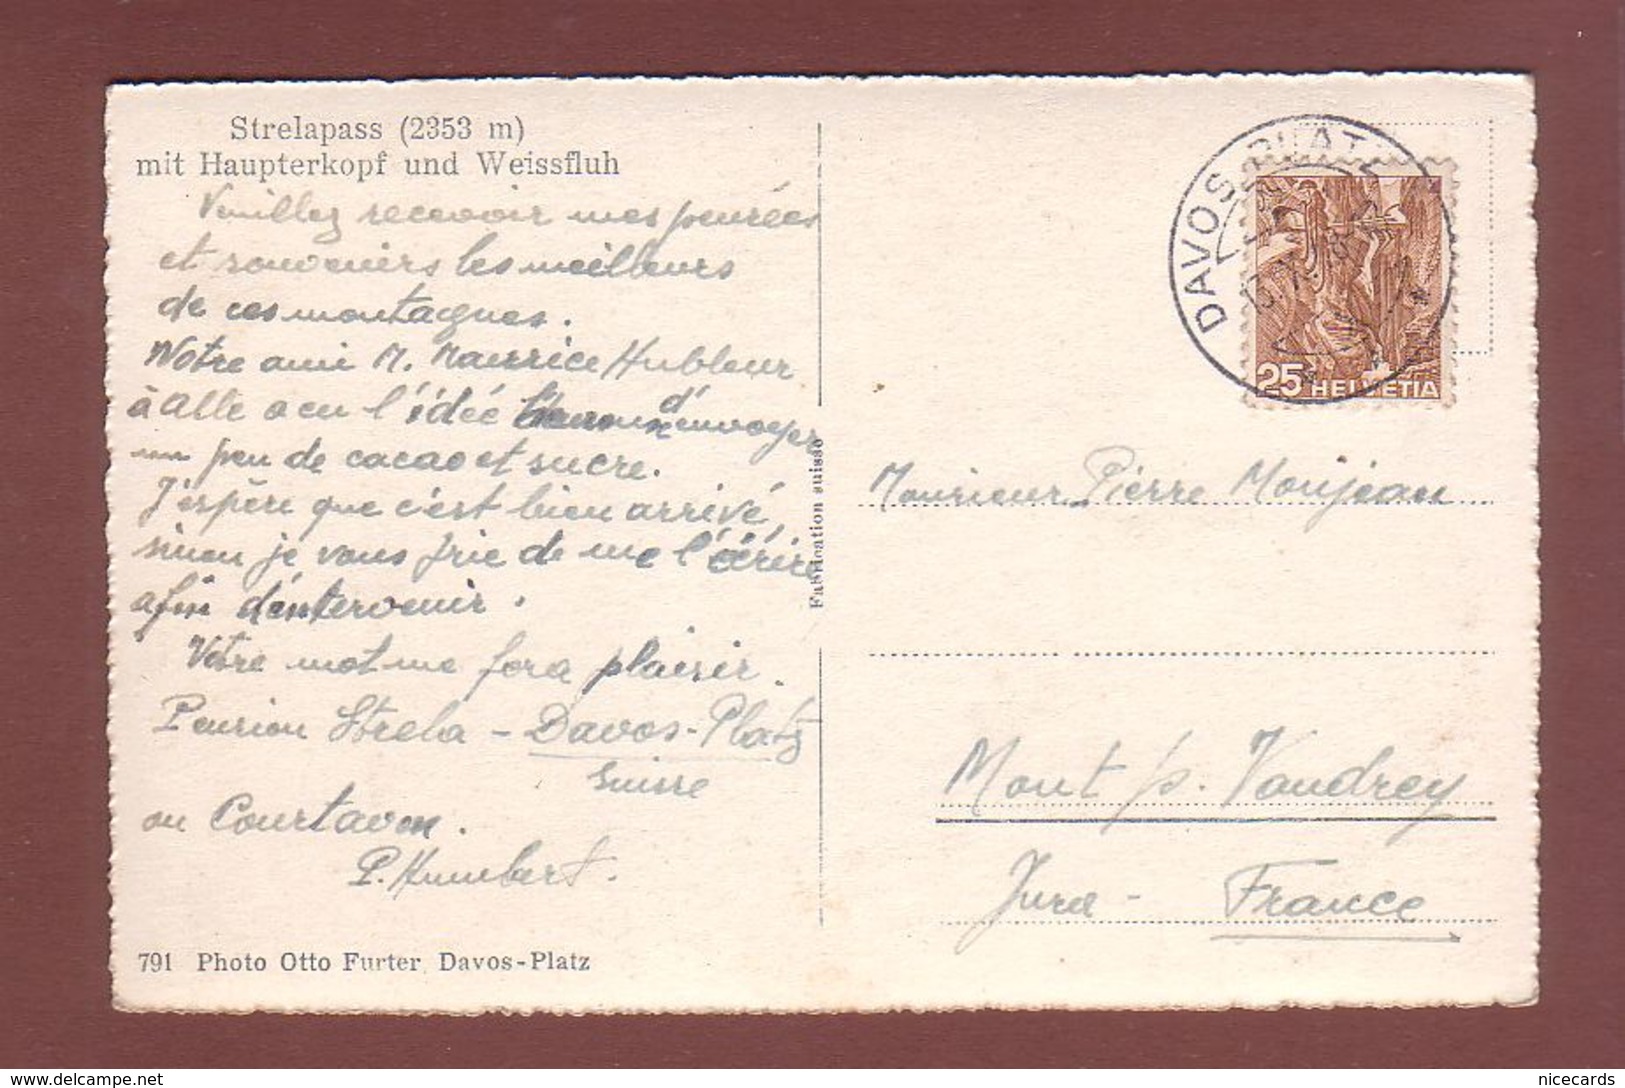 Strelapass (2353 m)
mit Haupterkopf und Weissfluh
Veuillez recevoir mes pensées
et souvenirs les meilleurs
de ces montagnes.
Notre ami M. Maurice Hubleur
à Alle a eu l'idée d'envoyer
un peu de cacao et sucre.
J'espère que c'est bien arrivé,
sinon je vous prie de me l'écrire
afin d'intervenir.
Votre mot me fera plaisir.
Pension Strela - Davos-Platz
Suisse
ou Courtavon.
P. Humbert.
791 Photo Otto Furter Davos-Platz
Fabrication suisse
DAVOS PLATZ
25 HELVETIA
Monsieur Pierre Monjean
Mont s/s. Vaudrey
Jura - France
delcampe.net
nicecards